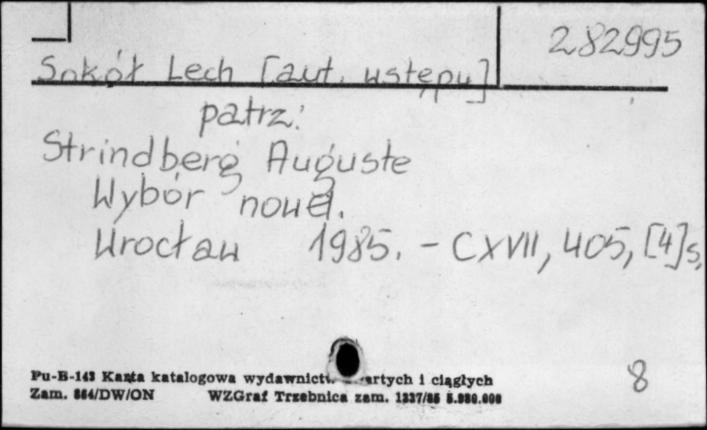 282995
Sokół Lech [aut. wstępu]
patrz:
Strindberg Auguste
Wybór nowel.
Wrocław 1985. - CXVII, 405, [4]s,
Pu-B-143 Karta katalogowa wydawnictw zwartych i ciągłych
8
Zam. 864/DW/ON WZGraf Trzebnica zam. 1337/85 5.980.000